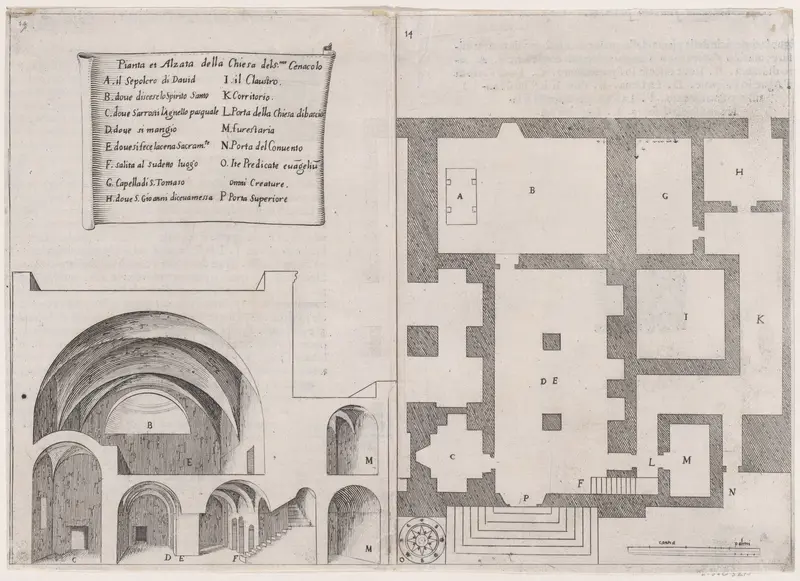 14
Pianta et Alzata della Chiesa del s.mo Cenacolo
A. il Sepolcro di David
B. doue discese lo Spirito Santo
C. doue s'arrosti l'Agnello pasquale
D. doue si mangio
E. doue si fece la cena Sacram.le
F. salita al sudetto luogo
G. Capella di S. Tomaso
H. doue S. Giouanni diceua messa
I. il Claustro.
K. Corritorio.
L. Porta della Chiesa di bascio
M. furestaria
N. Porta del Conuento
O. Ite Predicate euāgeliū
omni Creature.
P Porta Superiore
B
E
M
C
D E
F
M
14
A
B
G
H
I
K
D E
C
F
L
M
N
P
O
canna
palmi